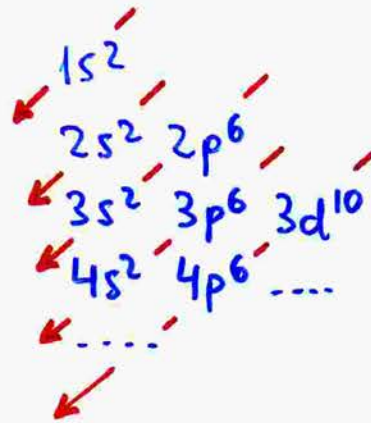 1s²
2s² 2p⁶
3s² 3p⁶ 3d¹⁰
4s² 4p⁶ ....
....